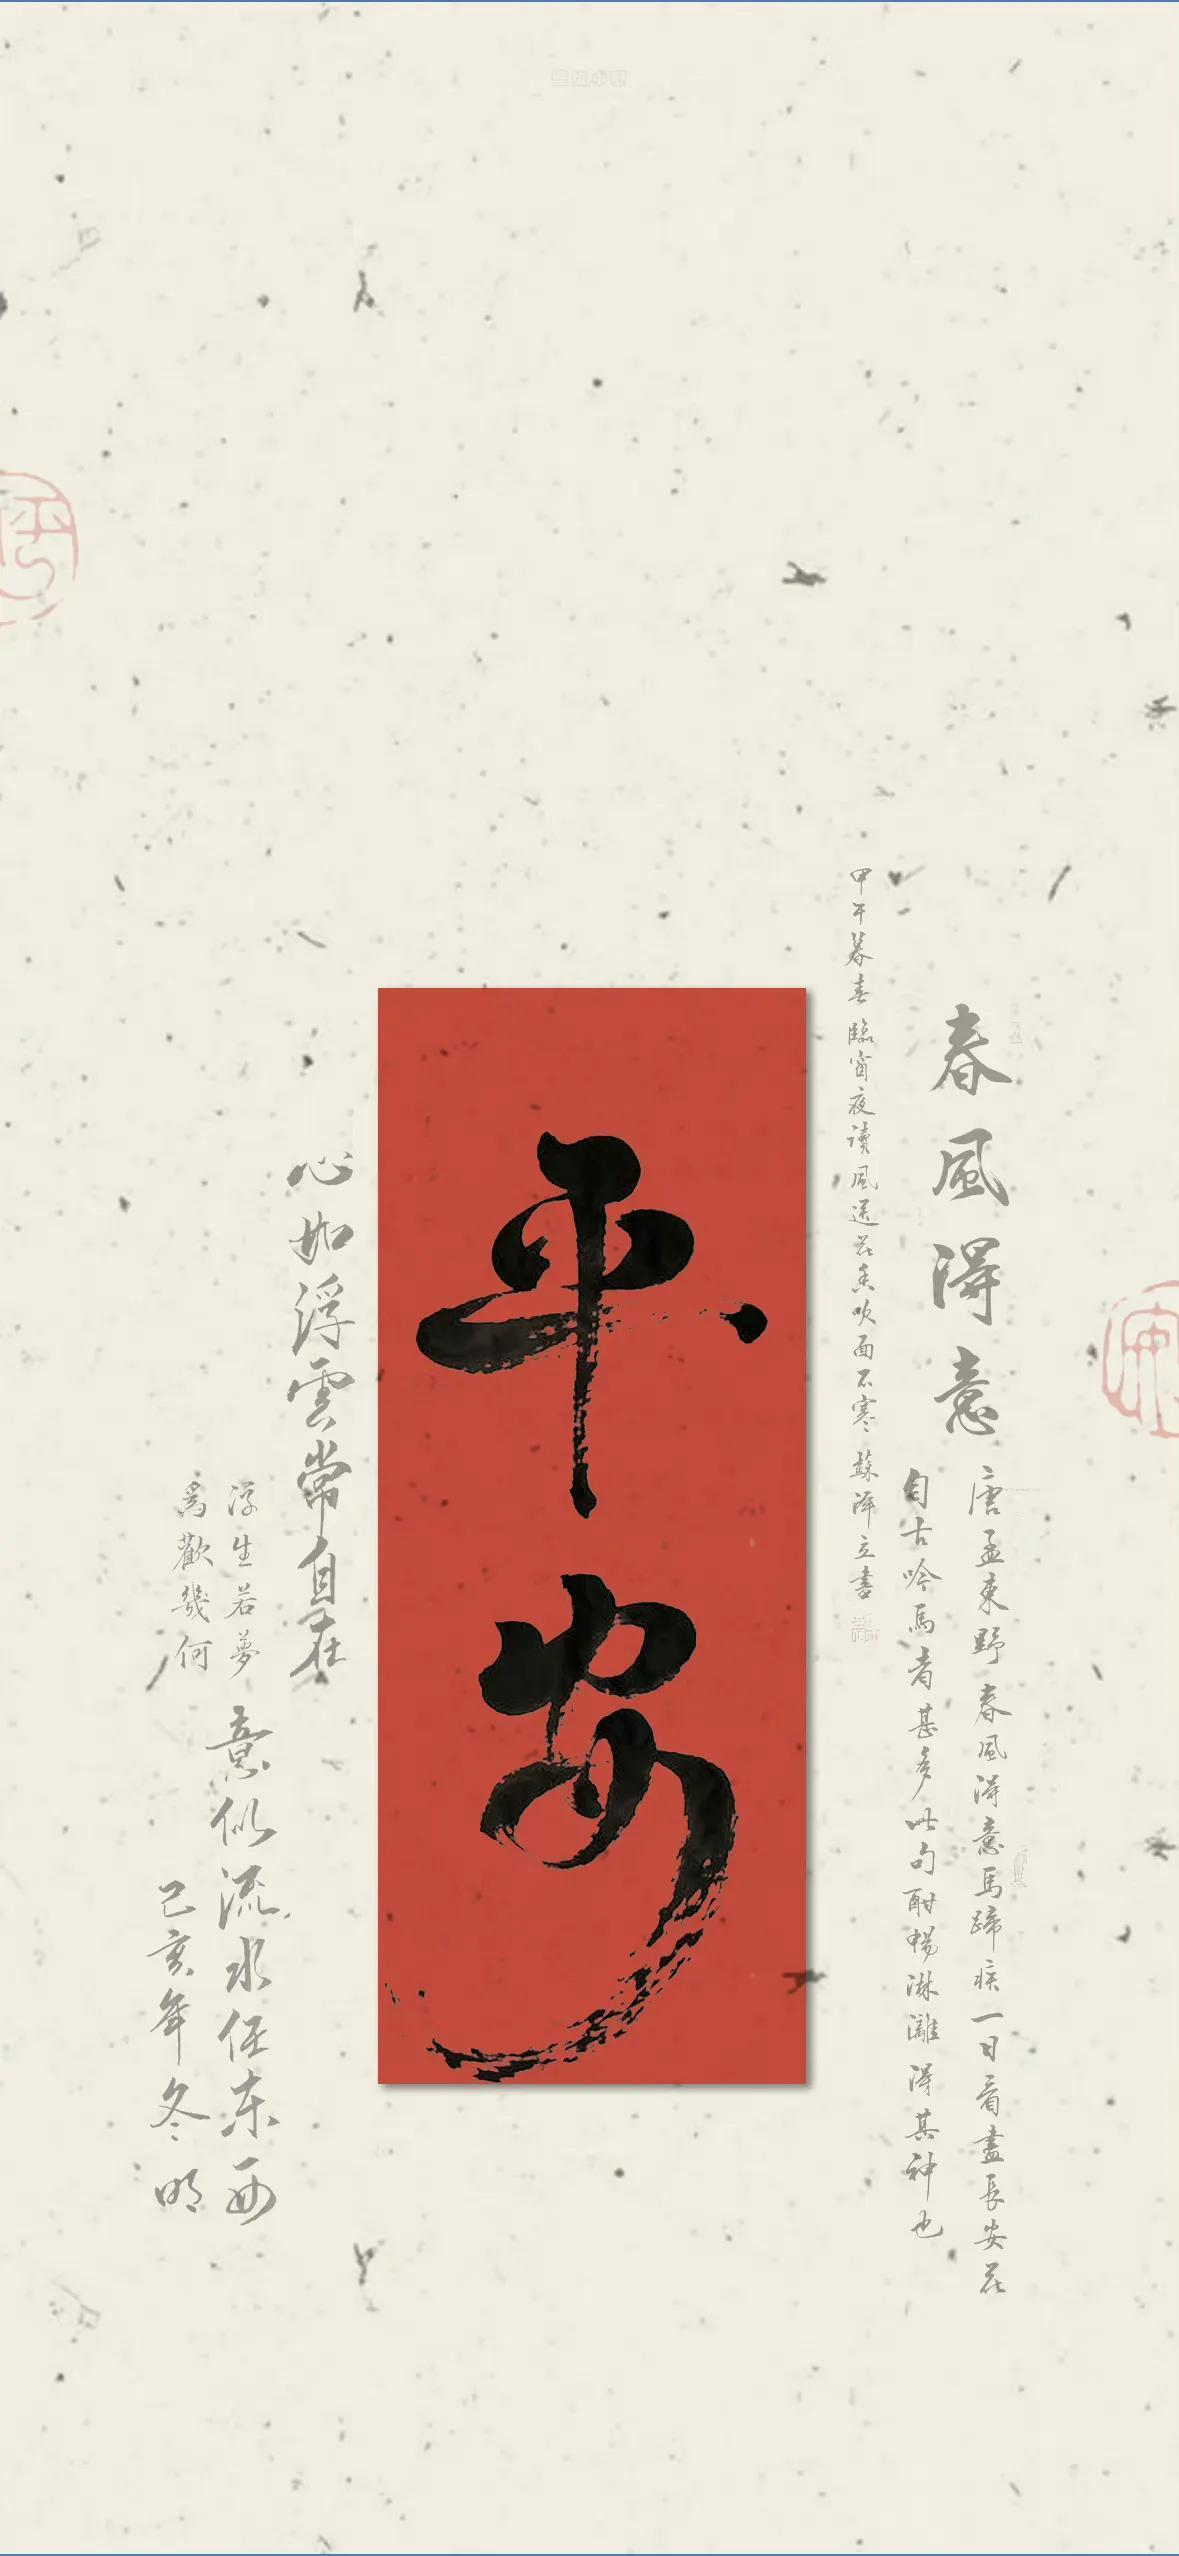 春風得意
唐孟東野春風得意馬蹄疾一日看盡長安花
自古吟馬者甚多此句酣暢淋灕得其神也
甲午暮春臨窗夜讀風送花香吹面不寒蘇澤立書
平安
心如浮雲常自在
浮生若夢
為歡幾何
意似流水任东西
己亥年冬明
平
安